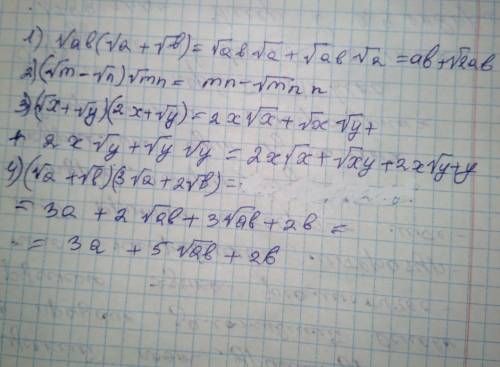 1) √ab(√a + √b) = √ab √a + √ab √a = ab + √2ab
2) (√m - √n) √mn = mn - √mn n
3) (√x + √y)(2x + √y) = 2x√x + √x √y +
+ 2x √y + √y √y = 2x√x + √xy + 2x√y + y
4) (√a + √b)(3√a + 2√b) =
= 3a + 2√ab + 3√ab + 2b =
= 3a + 5√ab + 2b